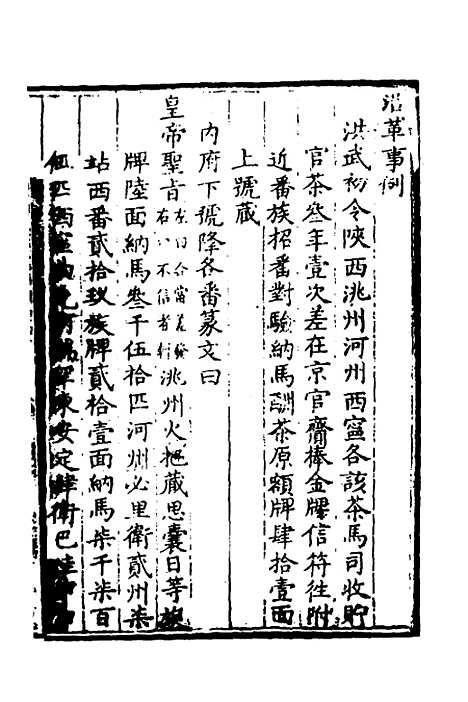 沿革事例
洪武初令陝西洮州河州西寧各該茶馬司收貯
官茶叄年壹次差在京官齎捧金牌信符往附
近番族招番對驗納馬酬茶原額牌肆拾壹面
上號藏
內府下號降各番篆文曰
皇帝聖旨左曰合當差發右曰不信者斬洮州火把藏思囊日等族
牌陸面納馬叄千伍拾匹河州必里衛貳州柒
站西番貳拾玖族牌貳拾壹面納馬柒千柒百
伍匹西寧曲先阿端罕東安定肆衛巴哇申中